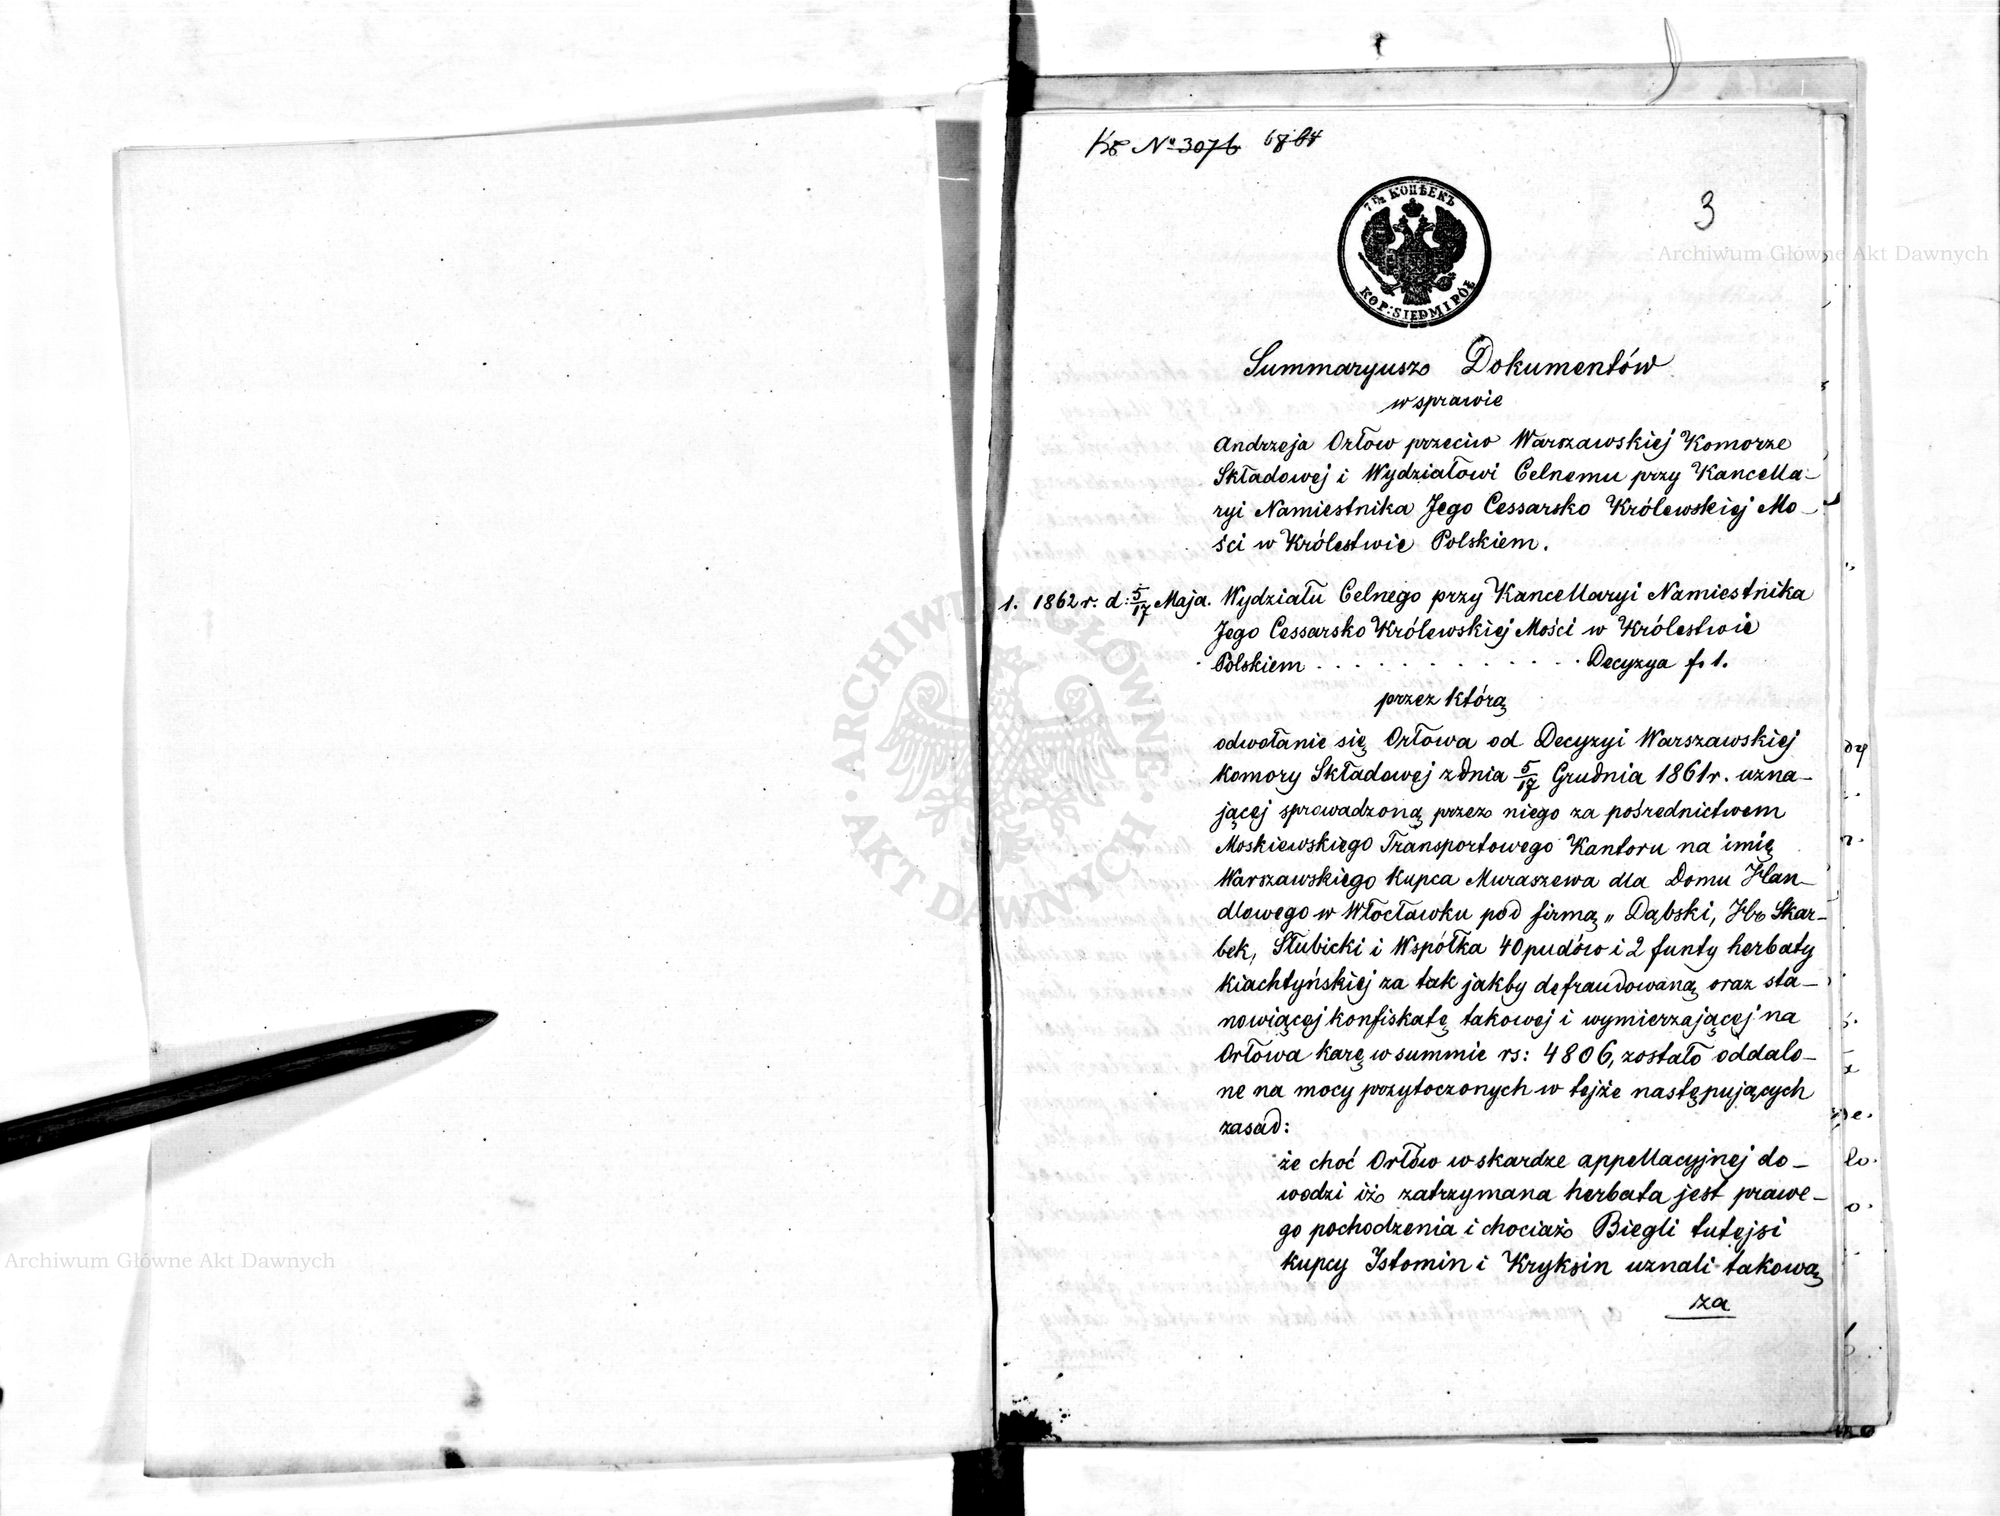 Kс № 3076
3
7 1/2 КОПѢЕКЪ
KOP: SIEDM I PÓŁ
Summaryusz Dokumentów
w sprawie
Andrzeja Orłow przeciw Warszawskiej Komorze
Składowej i Wydziałowi Celnemu przy Kancella-
ryi Namiestnika Jego Cessarsko Królewskiej Mo-
ści w Królestwie Polskiem.
1. 1862 r. d. 5/17 Maja. Wydziału Celnego przy Kancellaryi Namiestnika
Jego Cessarsko Królewskiej Mości w Królestwie
Polskiem . . . . . . . . . . . . Decyzya f. 1.
przez którą
odwołanie się Orłowa od Decyzyi Warszawskiej
Komory Składowej z dnia 5/17 Grudnia 1861 r. uzna-
jącej sprowadzoną przez niego za pośrednictwem
Moskiewskiego Transportowego Kantoru na imię
Warszawskiego Kupca Muraszewa dla Domu Han-
dlowego w Włocławku pod firmą „Dąbski, Hr Skar-
bek, Słubicki i Wspólka 40 pudów i 2 funty herbaty
kiachtyńskiej za tak jakby defraudowaną oraz sta-
nowiącej konfiskatę takowej i wymierzającej na
Orłowa karę w summie rs: 4806, zostało oddalo-
ne na mocy przytoczonych w tejże następujących
zasad:
że choć Orłów w skardze appellacyjnej do-
wodzi iż zatrzymana herbata jest prawe-
go pochodzenia i chociaż Biegli tutejsi
kupcy Istomin i Kryksin uznali takową
za
Archiwum Główne Akt Dawnych
Archiwum Główne Akt Dawnych
ARCHIWUM GŁÓWNE AKT DAWNYCH